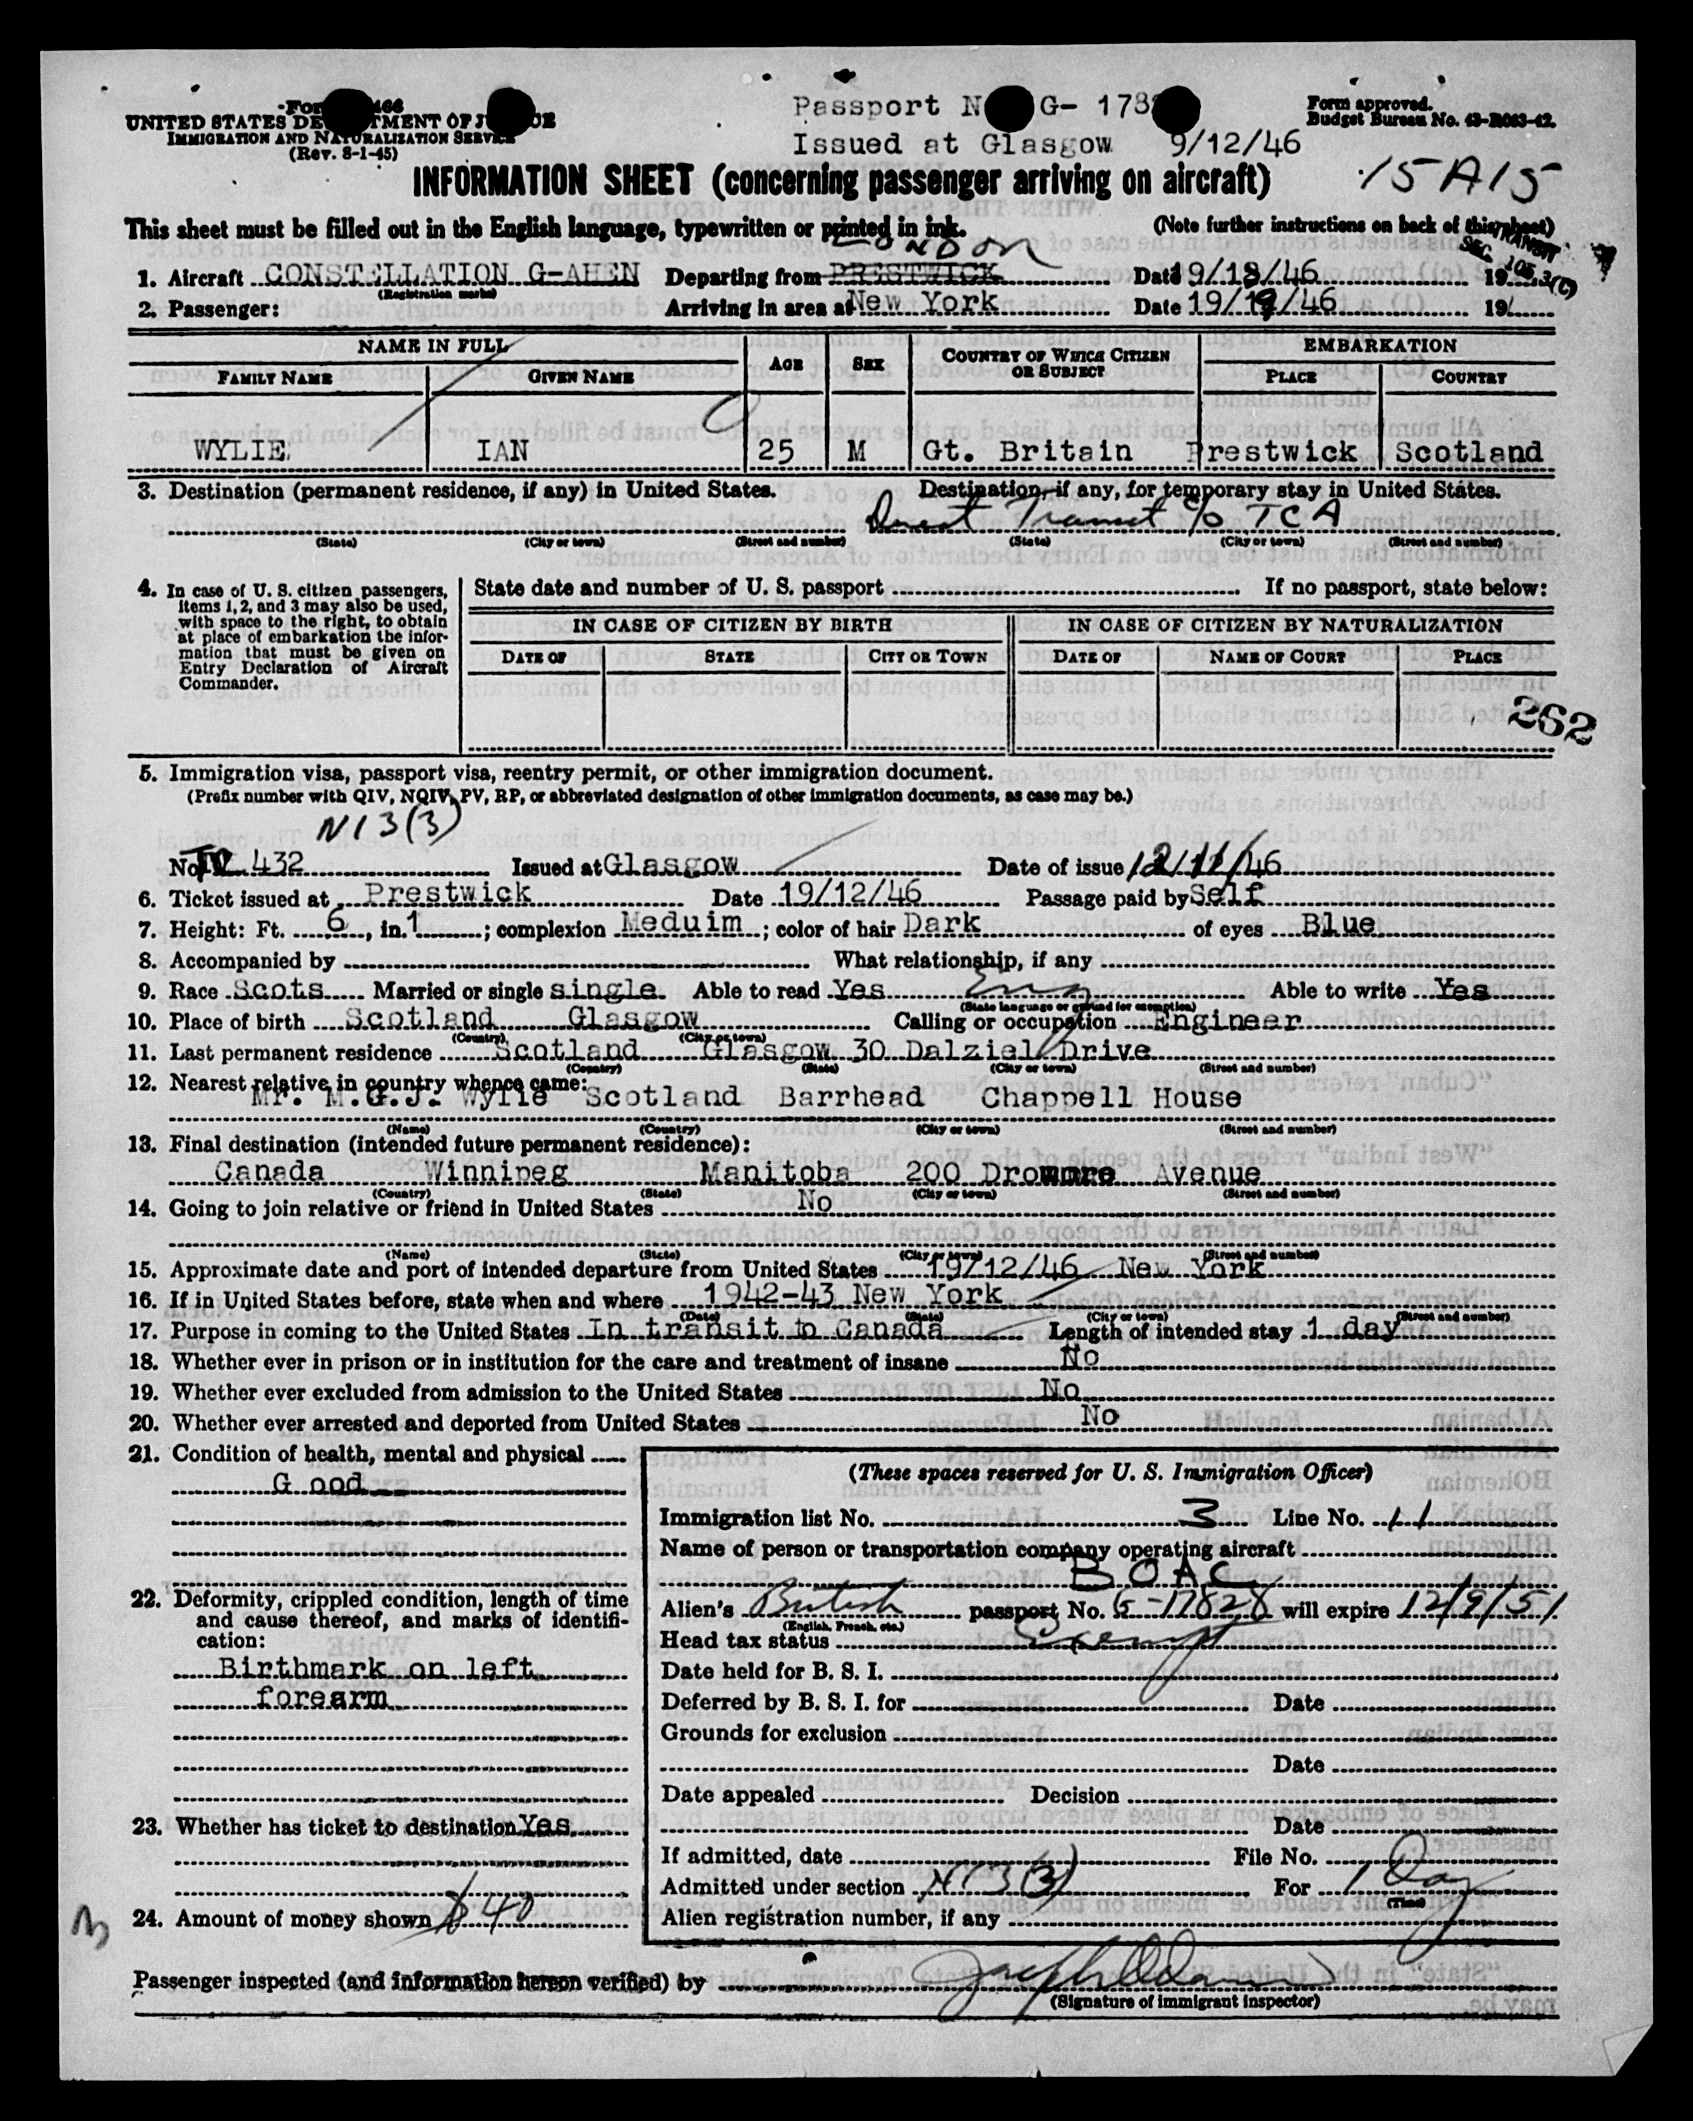 UNITED STATES DEPARTMENT OF JUSTICE
IMMIGRATION AND NATURALIZATION SERVICE
(Rev. 8-1-45)
Passport No G- 178
Issued at Glasgow 9/12/46
Form approved.
Budget Bureau No. 43-R063-42.
15 A15
INFORMATION SHEET (concerning passenger arriving on aircraft)
This sheet must be filled out in the English language, typewritten or printed in ink.
(Note further instructions on back of this sheet)
TRANSIT
SEC. 105.3(c)
LONDON
1. Aircraft CONSTELLATION G-AHEN Departing from PRESTWICK Date 19/18/46 19
(Registration marks)
2. Passenger: Arriving in area at New York Date 19/19/46 19
NAME IN FULL
FAMILY NAME GIVEN NAME AGE SEX COUNTRY OF WHICH CITIZEN OR SUBJECT EMBARKATION
PLACE COUNTRY
WYLIE IAN 25 M Gt. Britain Prestwick Scotland
3. Destination (permanent residence, if any) in United States. Destination, if any, for temporary stay in United States.
Direct Transit c/o TCA
(State) (City or town) (Street and number) (State) (City or town) (Street and number)
4. In case of U. S. citizen passengers,
items 1, 2, and 3 may also be used,
with space to the right, to obtain
at place of embarkation the infor-
mation that must be given on
Entry Declaration of Aircraft
Commander.
State date and number of U. S. passport If no passport, state below:
IN CASE OF CITIZEN BY BIRTH IN CASE OF CITIZEN BY NATURALIZATION
DATE OF STATE CITY OR TOWN DATE OF NAME OF COURT PLACE
262
5. Immigration visa, passport visa, reentry permit, or other immigration document.
(Prefix number with QIV, NQIV, PV, RP, or abbreviated designation of other immigration documents, as case may be.)
N13(3)
No. 432 Issued at Glasgow Date of issue 12/11/46
6. Ticket issued at Prestwick Date 19/12/46 Passage paid by Self
7. Height: Ft. 6, in. 1; complexion Meduim; color of hair Dark of eyes Blue
8. Accompanied by What relationship, if any
9. Race Scots Married or single single Able to read Yes Eng Able to write Yes
(State language or ground for exemption)
10. Place of birth Scotland Glasgow Calling or occupation Engineer
(Country) (City or town)
11. Last permanent residence Scotland Glasgow 30 Dalziel Drive
(Country) (State) (City or town) (Street and number)
12. Nearest relative in country whence came:
Mr. M.G.J. Wylie Scotland Barrhead Chappell House
(Name) (Country) (City or town) (Street and number)
13. Final destination (intended future permanent residence):
Canada Winnipeg Manitoba 200 Dromore Avenue
(Country) (State) (City or town) (Street and number)
14. Going to join relative or friend in United States No
(Name) (State) (City or town) (Street and number)
15. Approximate date and port of intended departure from United States 19/12/46 New York
16. If in United States before, state when and where 1942-43 New York
(Date) (State) (City or town) (Street and number)
17. Purpose in coming to the United States In transit to Canada Length of intended stay 1 day
18. Whether ever in prison or in institution for the care and treatment of insane No
19. Whether ever excluded from admission to the United States No
20. Whether ever arrested and deported from United States No
21. Condition of health, mental and physical
G ood
22. Deformity, crippled condition, length of time
and cause thereof, and marks of identifi-
cation:
Birthmark on left
forearm
23. Whether has ticket to destination Yes
24. Amount of money shown $40
(These spaces reserved for U. S. Immigration Officer)
Immigration list No. 3 Line No. 11
Name of person or transportation company operating aircraft
BOAC
Alien's British passport No. G-17828 will expire 12/9/51
(English, French, etc.)
Head tax status Exempt
Date held for B. S. I.
Deferred by B. S. I. for Date
Grounds for exclusion
Date
Date appealed Decision
Date
If admitted, date File No.
Admitted under section N13(3) For 1 Day
(Time)
Alien registration number, if any
Passenger inspected (and information hereon verified) by
(Signature of immigrant inspector)